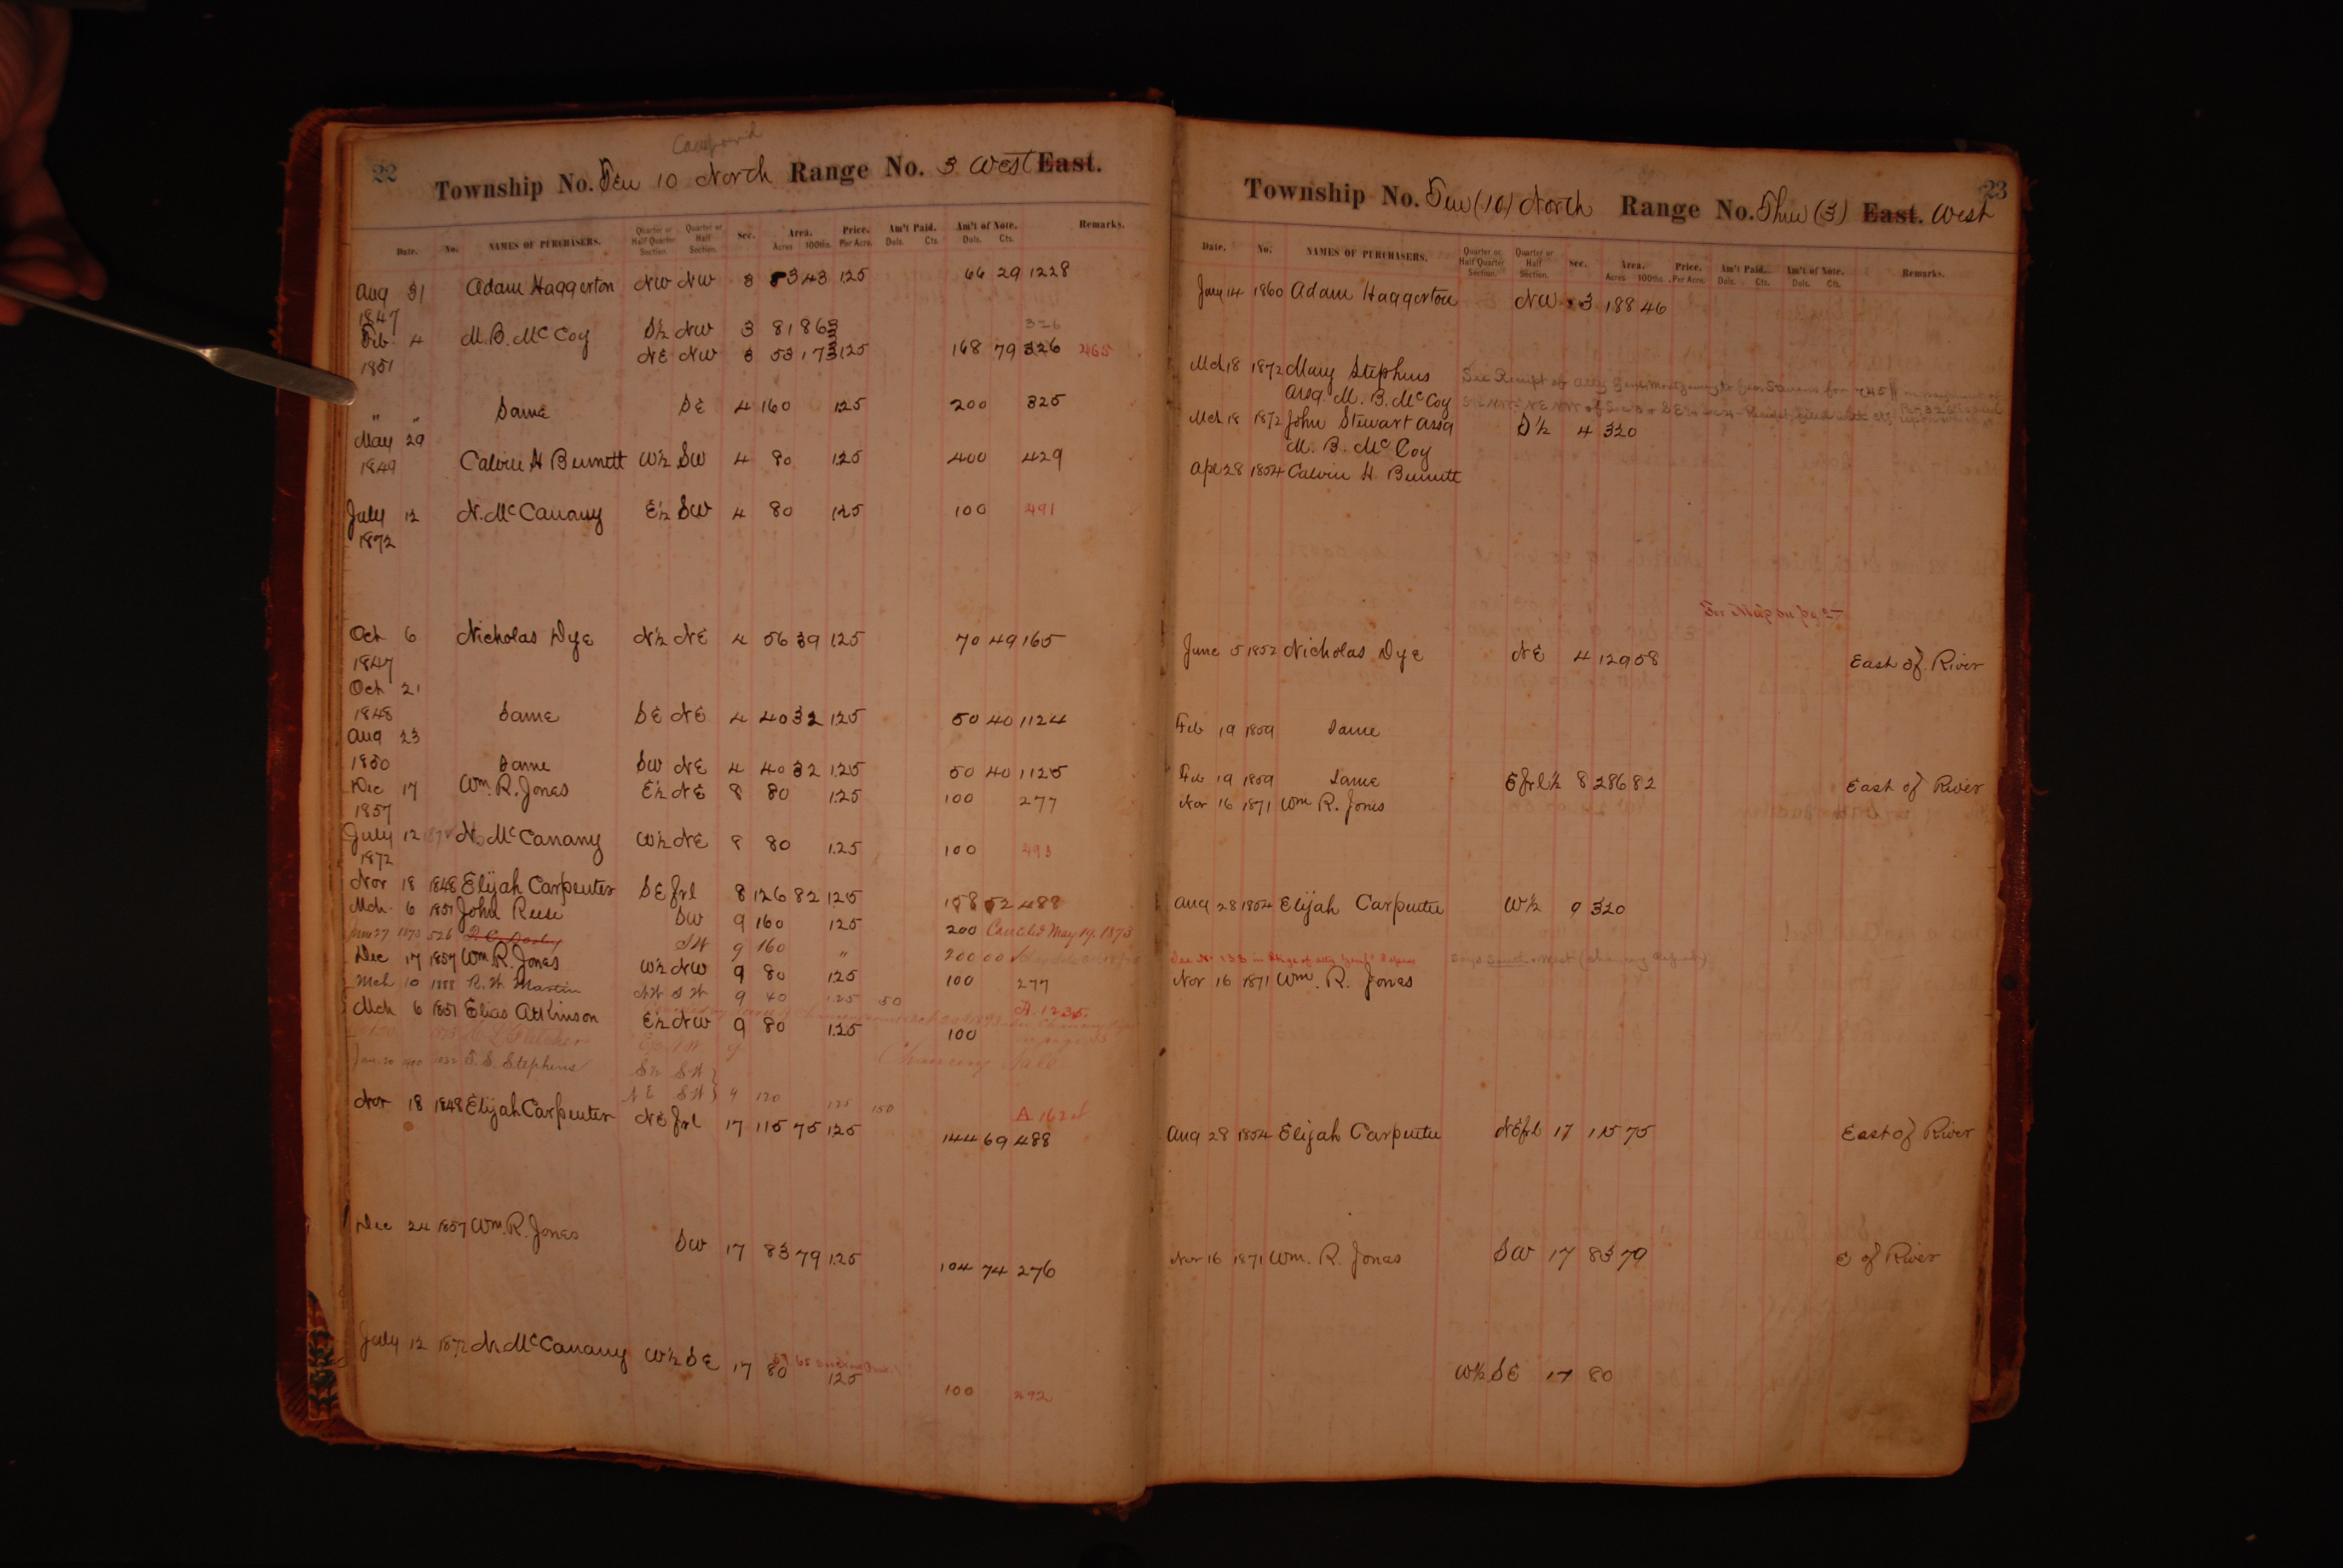 Compound
22
Township No. Ten 10 North Range No. 3 West East.
Date. No. NAMES OF PURCHASERS. Quarter or Half Quarter Section. Quarter or Half Section. Sec. Area. Acres 100ths. Price. Per Acre. Am't Paid. Dols. Cts. Am't of Note. Dols. Cts. Remarks.
Aug 31 Adam Haggerton NW NW 3 53 43 1.25 66 29 1228
1847
Feb 4 M. B. McCoy S½ NW 3 81 86 326
NE NW 3 53 17 1.25 168 79 326 465
1851
" " Same SE 4 160 1.25 200 325
May 29
1849 Calvin H Burnett W½ SW 4 80 1.25 400 429
July 12 N. McCanany E½ SW 4 80 1.25 100 491
1872
Oct 6 Nicholas Dye N½ NE 4 56 39 1.25 70 49 165
1847
Oct 21
1848 Same SE NE 4 40 32 1.25 50 40 1124
Aug 23
1850 Same SW NE 4 40 32 1.25 50 40 1125
Dec 17 Wm. R. Jones E½ NE 8 80 1.25 100 277
1857
July 12 N. McCanany W½ NE 8 80 1.25 100 493
1872
Nov 18 1848 Elijah Carpenter SE frl 8 126 82 1.25 158 52 488
Mch 6 1851 John Reese SW 9 160 1.25 200 Canc'ld May 19. 1873
1873 526 SW 9 160 " 200 00
Dec 17 1857 Wm R. Jones W½ NW 9 80 1.25 100 277
Mch 10 1888 R. W. Martin NW SW 9 40 1.25 50 A. 1235.
Mch 6 1851 Elias Attkinson E½ NW 9 80 1.25 100
Chancery Sale
Jan. 20 S. S. Stephens S½ SW
NE SW } 9 120 1.25 150 A 162
Nov 18 1848 Elijah Carpenter NE frl 17 115 75 1.25 144 69 488
Dec 24 1857 Wm. R. Jones SW 17 83 79 1.25 104 74 276
July 12 1872 N. McCanany W½ SE 17 80 1.25 100 492
23
Township No. Ten (10) North Range No. Three (3) East. West
Date. No. NAMES OF PURCHASERS. Quarter or Half Quarter Section. Quarter or Half Section. Sec. Area. Acres 100ths. Price. Per Acre. Am't Paid. Dols. Cts. Am't of Note. Dols. Cts. Remarks.
Jany 14 1860 Adam Haggerton NW 3 188 46
Mch 18 1872 Mary Stephens
Assg. M. B. McCoy
Mch 18 1872 John Stewart Assg S½ 4 320
M. B. McCoy
Apl 28 1854 Calvin H. Burnett
See Map on pg
June 5 1852 Nicholas Dye NE 4 129 58 East of River
Feb 19 1859 Same
Feb 19 1859 Same E frl ½ 8 286 82 East of River
Nov 16 1871 Wm R. Jones
Aug 28 1854 Elijah Carpenter W½ 9 320
Nov 16 1871 Wm. R. Jones
Aug 28 1854 Elijah Carpenter NE frl 17 115 75 East of River
Nov 16 1871 Wm. R. Jones SW 17 83 79 E of River
W½ SE 17 80